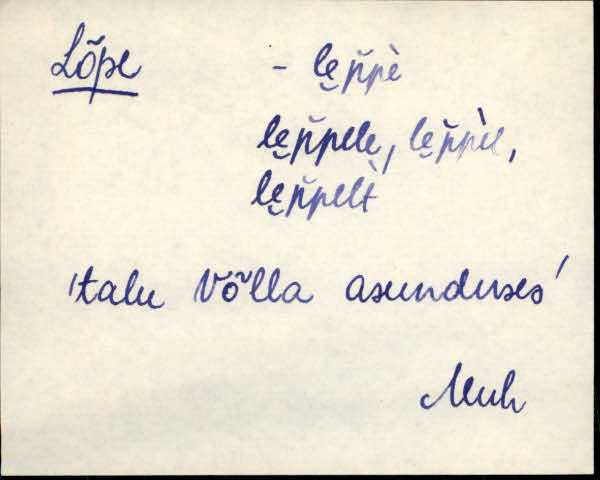 Lõpe - le̮p̆pè
le̮p̆pele, le̮p̆pèl,
le̮p̆pelt̀
'talu Võlla asunduses'
Muh